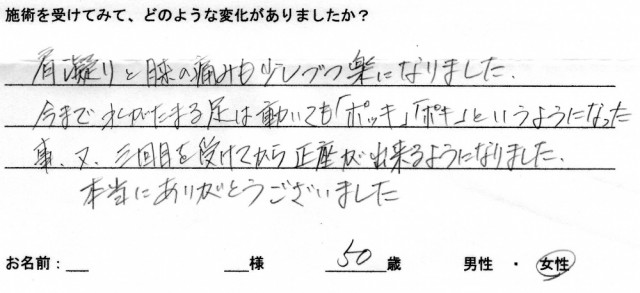 施術を受けてみて、どのような変化がありましたか?
肩凝りと膝の痛みも少しづつ楽になりました.
今まで水がたまる足は動いても「ポッキ」「ポキ」というようになった
事、又、三回目を受けてから正座が出来るようになりました.
本当にありがとうございました
お名前:__ __様 50歳 男性 ・ 女性